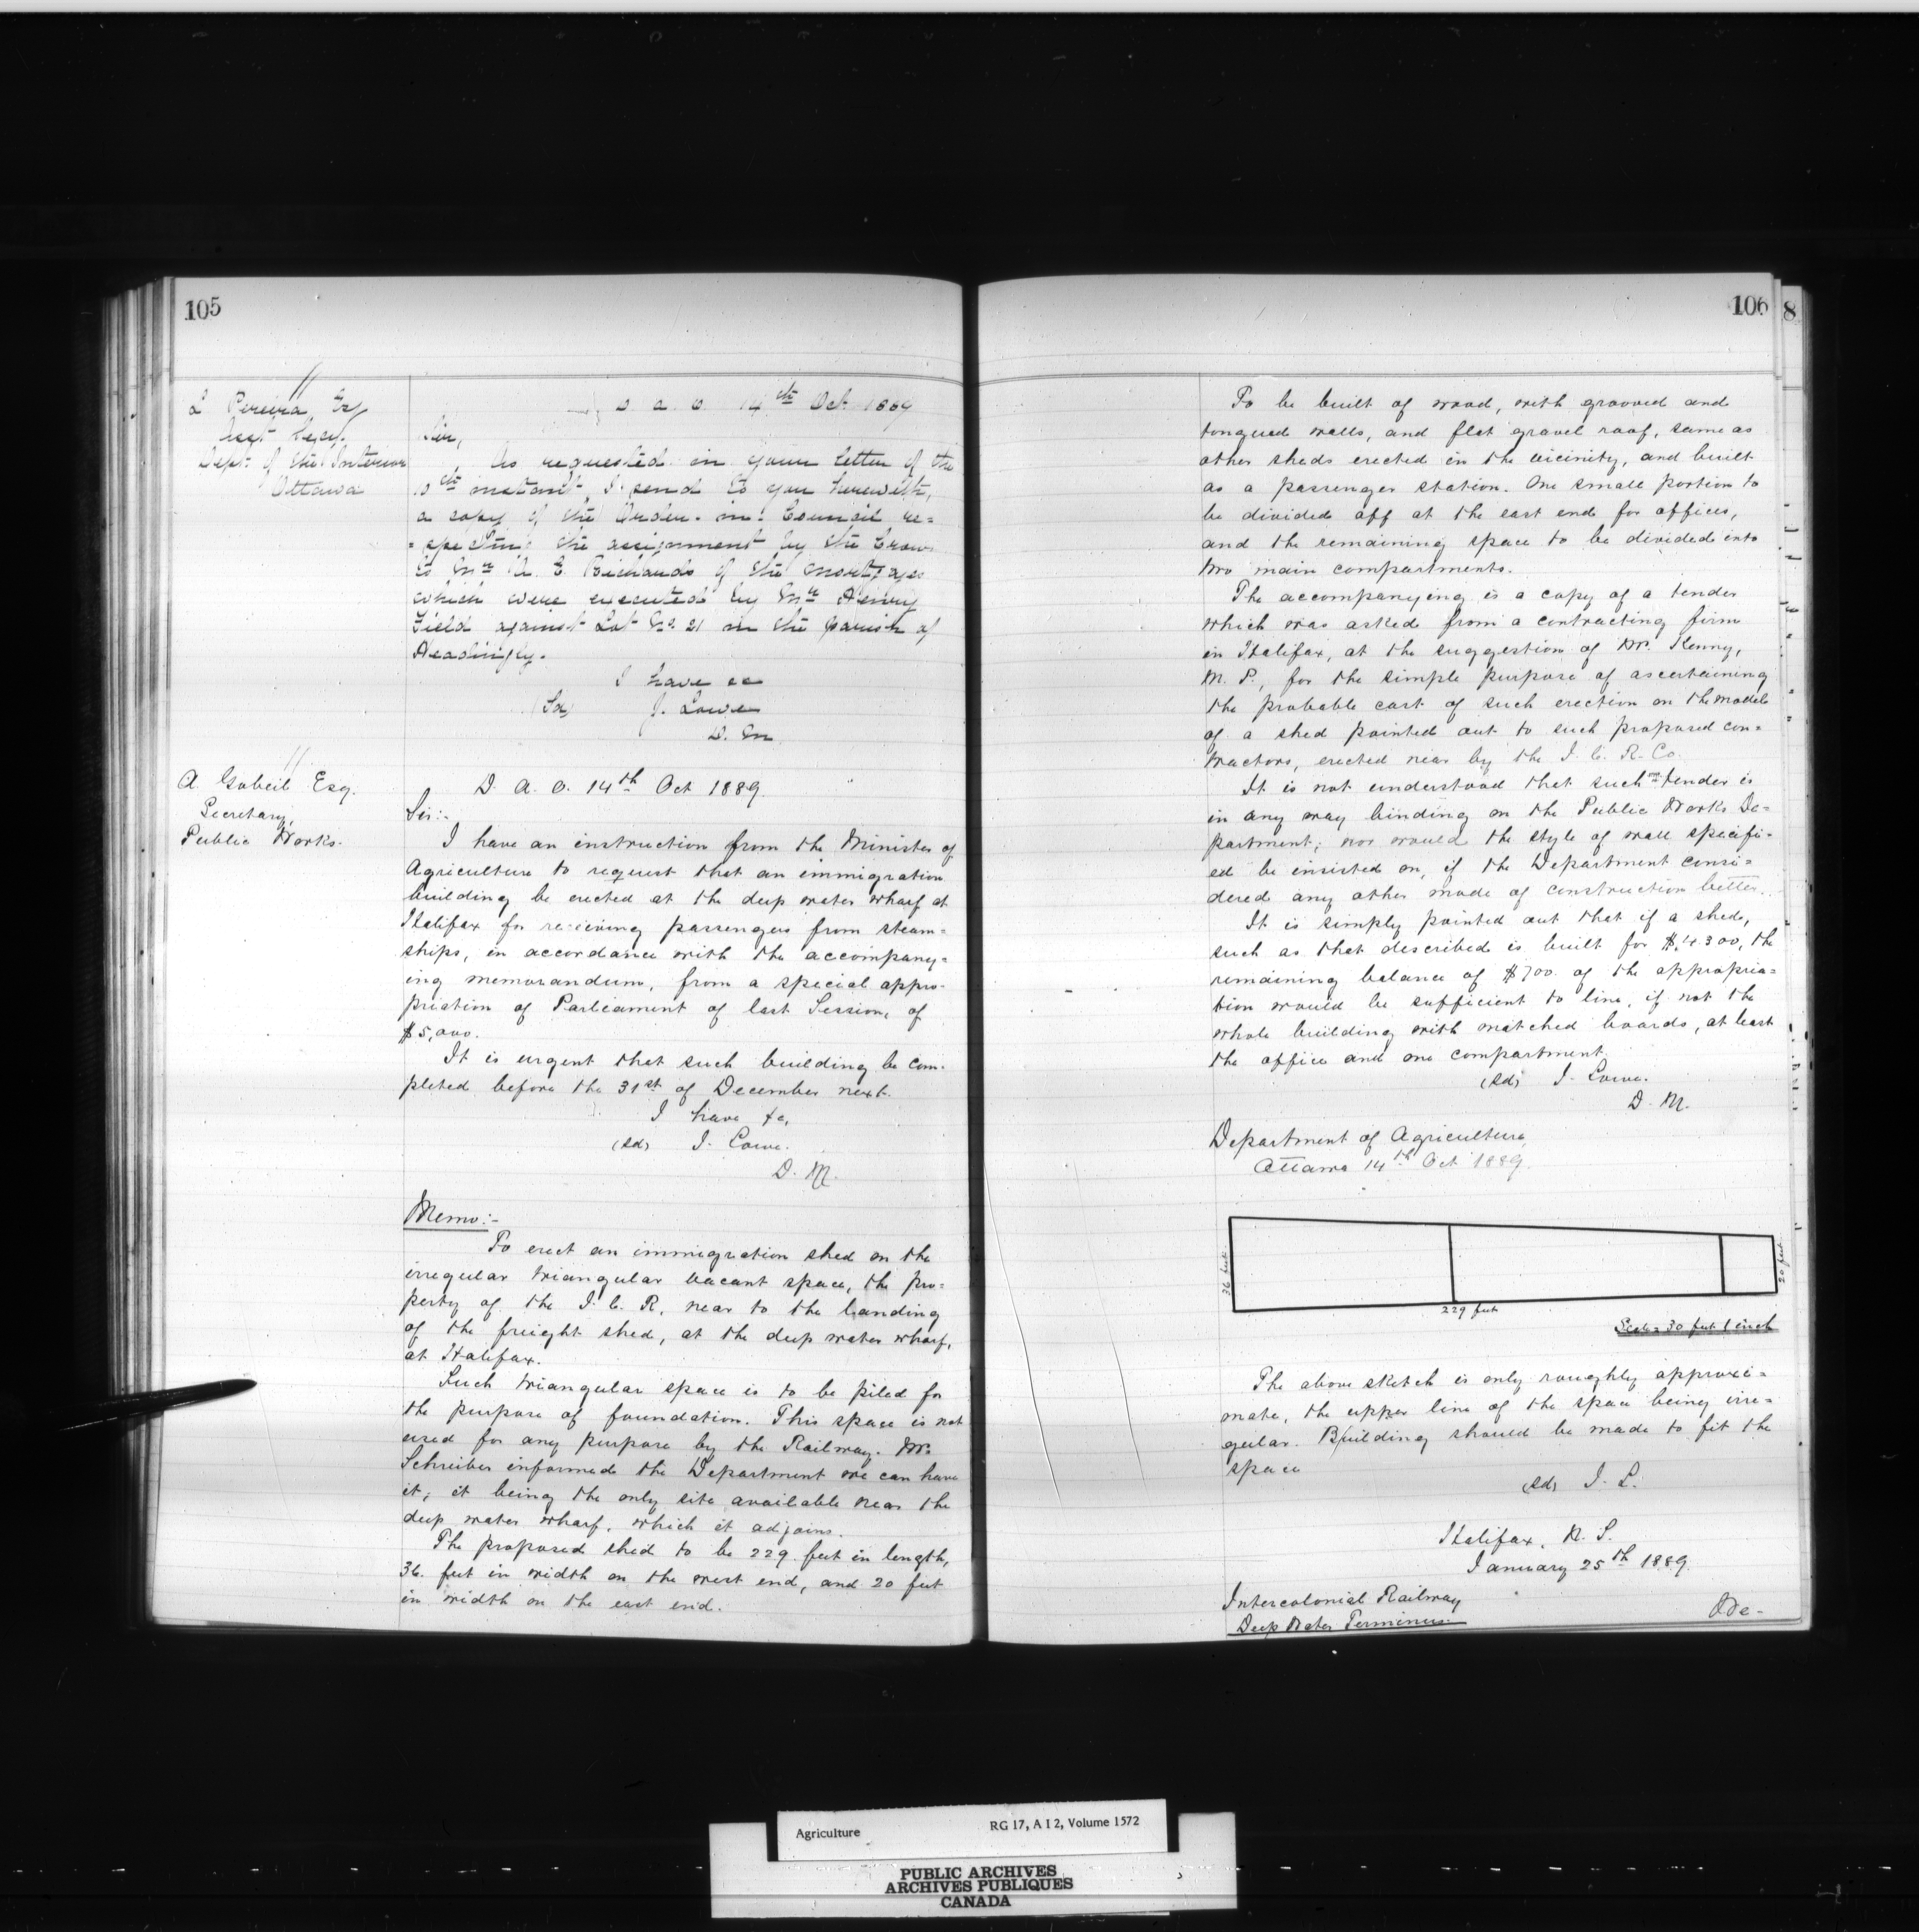 105
L Pereira, Esq
Asst Secy.
Dept. of the Interior
Ottawa
D. A. O. 14th Oct 1889
Sir,
As requested in your letter of the
10th instant, I send to you herewith,
a copy of the Order-in-Council re=
=specting the assignment by the Crown
to Mr A. E. Richards of the mortgages
which were executed by Mr Henry
Field against Lot No. 21 in the parish of
Headingly.
I have &c
(Sd) J. Lowe
D. M
A. Gobeil Esq.
Secretary,
Public Works.
D. A. O. 14th Oct 1889.
Sir:-
I have an instruction from the Minister of
Agriculture to request that an immigration
building be erected at the deep water wharf at
Halifax for receiving passengers from steam=
ships, in accordance with the accompany=
ing memorandum, from a special appro-
priation of Parliament of last Session, of
$5,000.
It is urgent that such building be com-
pleted before the 31st of December next.
I have &c,
(sd) J. Lowe.
D. M.
Memo:-
To erect an immigration shed on the
irregular triangular vacant space, the pro=
perty of the I. C. R, near to the landing
of the freight shed, at the deep water wharf,
at Halifax.
Such triangular space is to be piled for
the purpose of foundation. This space is not
used for any purpose by the Railway. Mr.
Schreiber informed the Department we can have
it; it being the only site available near the
deep water wharf, which it adjoins.
The proposed shed to be 229 feet in length,
36. feet in width on the west end, and 20 feet
in width on the east end.
106
8
To be built of wood, with grooved and
tongued walls, and flat gravel roof, same as
other sheds erected in the vicinity, and built
as a passenger station. One small portion to
be divided off at the east end for offices,
and the remaining space to be divided into
two main compartments.
The accompanying is a copy of a tender
which was asked from a contracting firm
in Halifax, at the suggestion of Mr. Kenny,
M. P., for the simple purpose of ascertaining
the probable cost of such erection on the model
of a shed pointed out to such proposed con=
tractors, erected near by the I. C. R. Co.
It is not understood that such tender is
in any way binding on the Public Works De=
partment; nor would the style of wall specifi-
ed be insisted on, if the Department consi=
dered any other mode of construction better.
It is simply pointed out that if a shed,
such as that described is built for $4300, the
remaining balance of $700. of the appropria=
tion would be sufficient to line, if not the
whole building with matched boards, at least
the office and one compartment.
(sd) J. Lowe.
D. M.
Department of Agriculture,
Ottawa 14th Oct 1889.
36 feet
20 feet
229 feet
Scale 30 feet 1 inch
The above sketch is only roughly approxi=
mate, the upper line of the space being irre=
gular. Building should be made to fit the
space
(sd) J. L.
Halifax, N. S.
January 25th 1889.
Intercolonial Railway
Deep Water Terminus.
We-
Agriculture RG 17, A I 2, Volume 1572
PUBLIC ARCHIVES
ARCHIVES PUBLIQUES
CANADA